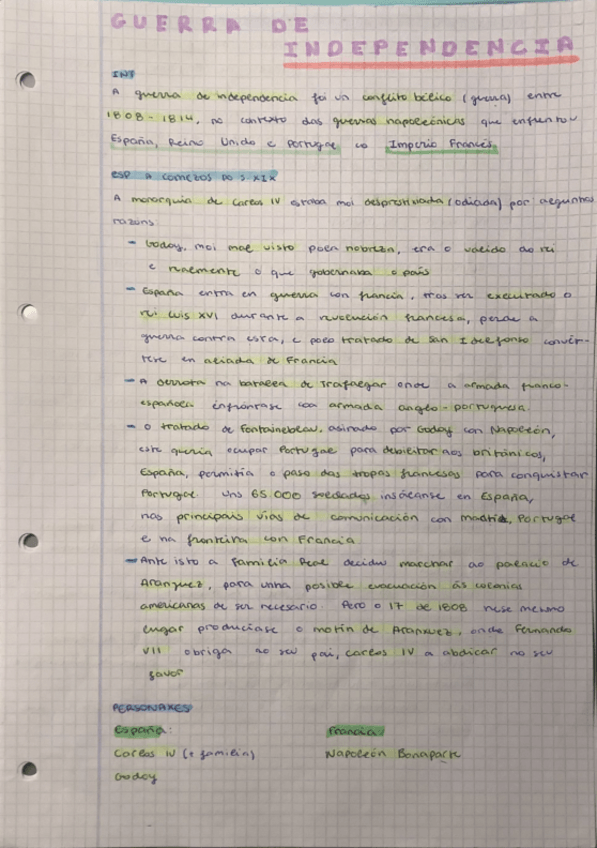 GUERRA DE
INDEPENDENCIA
INT
A guerra de independencia foi un conflito bélico (guerra) entre
1808-1814, no contexto das guerras napoleónicas que enfrontou
España, Reino Unido e Portugal co Imperio Francés
ESP A COMEZOS DO S XIX
A monarquía de Carlos IV estaba moi desprestixiada (odiada) por algunhas
razóns
- Godoy, moi mal visto pola nobreza, era o valido do rei
e realmente o que gobernaba o país
- España entra en guerra con Francia, tras ser executado o
rei Luis XVI durante a revolución francesa, perde a
guerra contra esta, e polo tratado de San Ildefonso convér-
tese en aliada de Francia
- A derrota na batalla de Trafalgar onde a armada franco-
española enfróntase coa armada anglo-portuguesa.
- O tratado de Fontainebleau, asinado por Godoy con Napoleón,
este quería ocupar Portugal para debilitar aos británicos,
España, permitía o paso das tropas francesas para conquistar
Portugal. Uns 65 000 soldados instálanse en España,
nas principais vías de comunicación con Madrid, Portugal
e na fronteira con Francia.
- Ante isto a Familia Real decidiu marchar ao palacio de
Aranjuez, para unha posible evacuación ás colonias
americanas de ser necesario. Pero o 17 de 1808 nese mesmo
lugar prodúcese o motín de Aranxuez, onde Fernando
VII obriga ao seu pai, Carlos IV a abdicar no seu
favor
PERSONAXES
España: Francia:
Carlos IV (e familia) Napoleón Bonaparte
Godoy